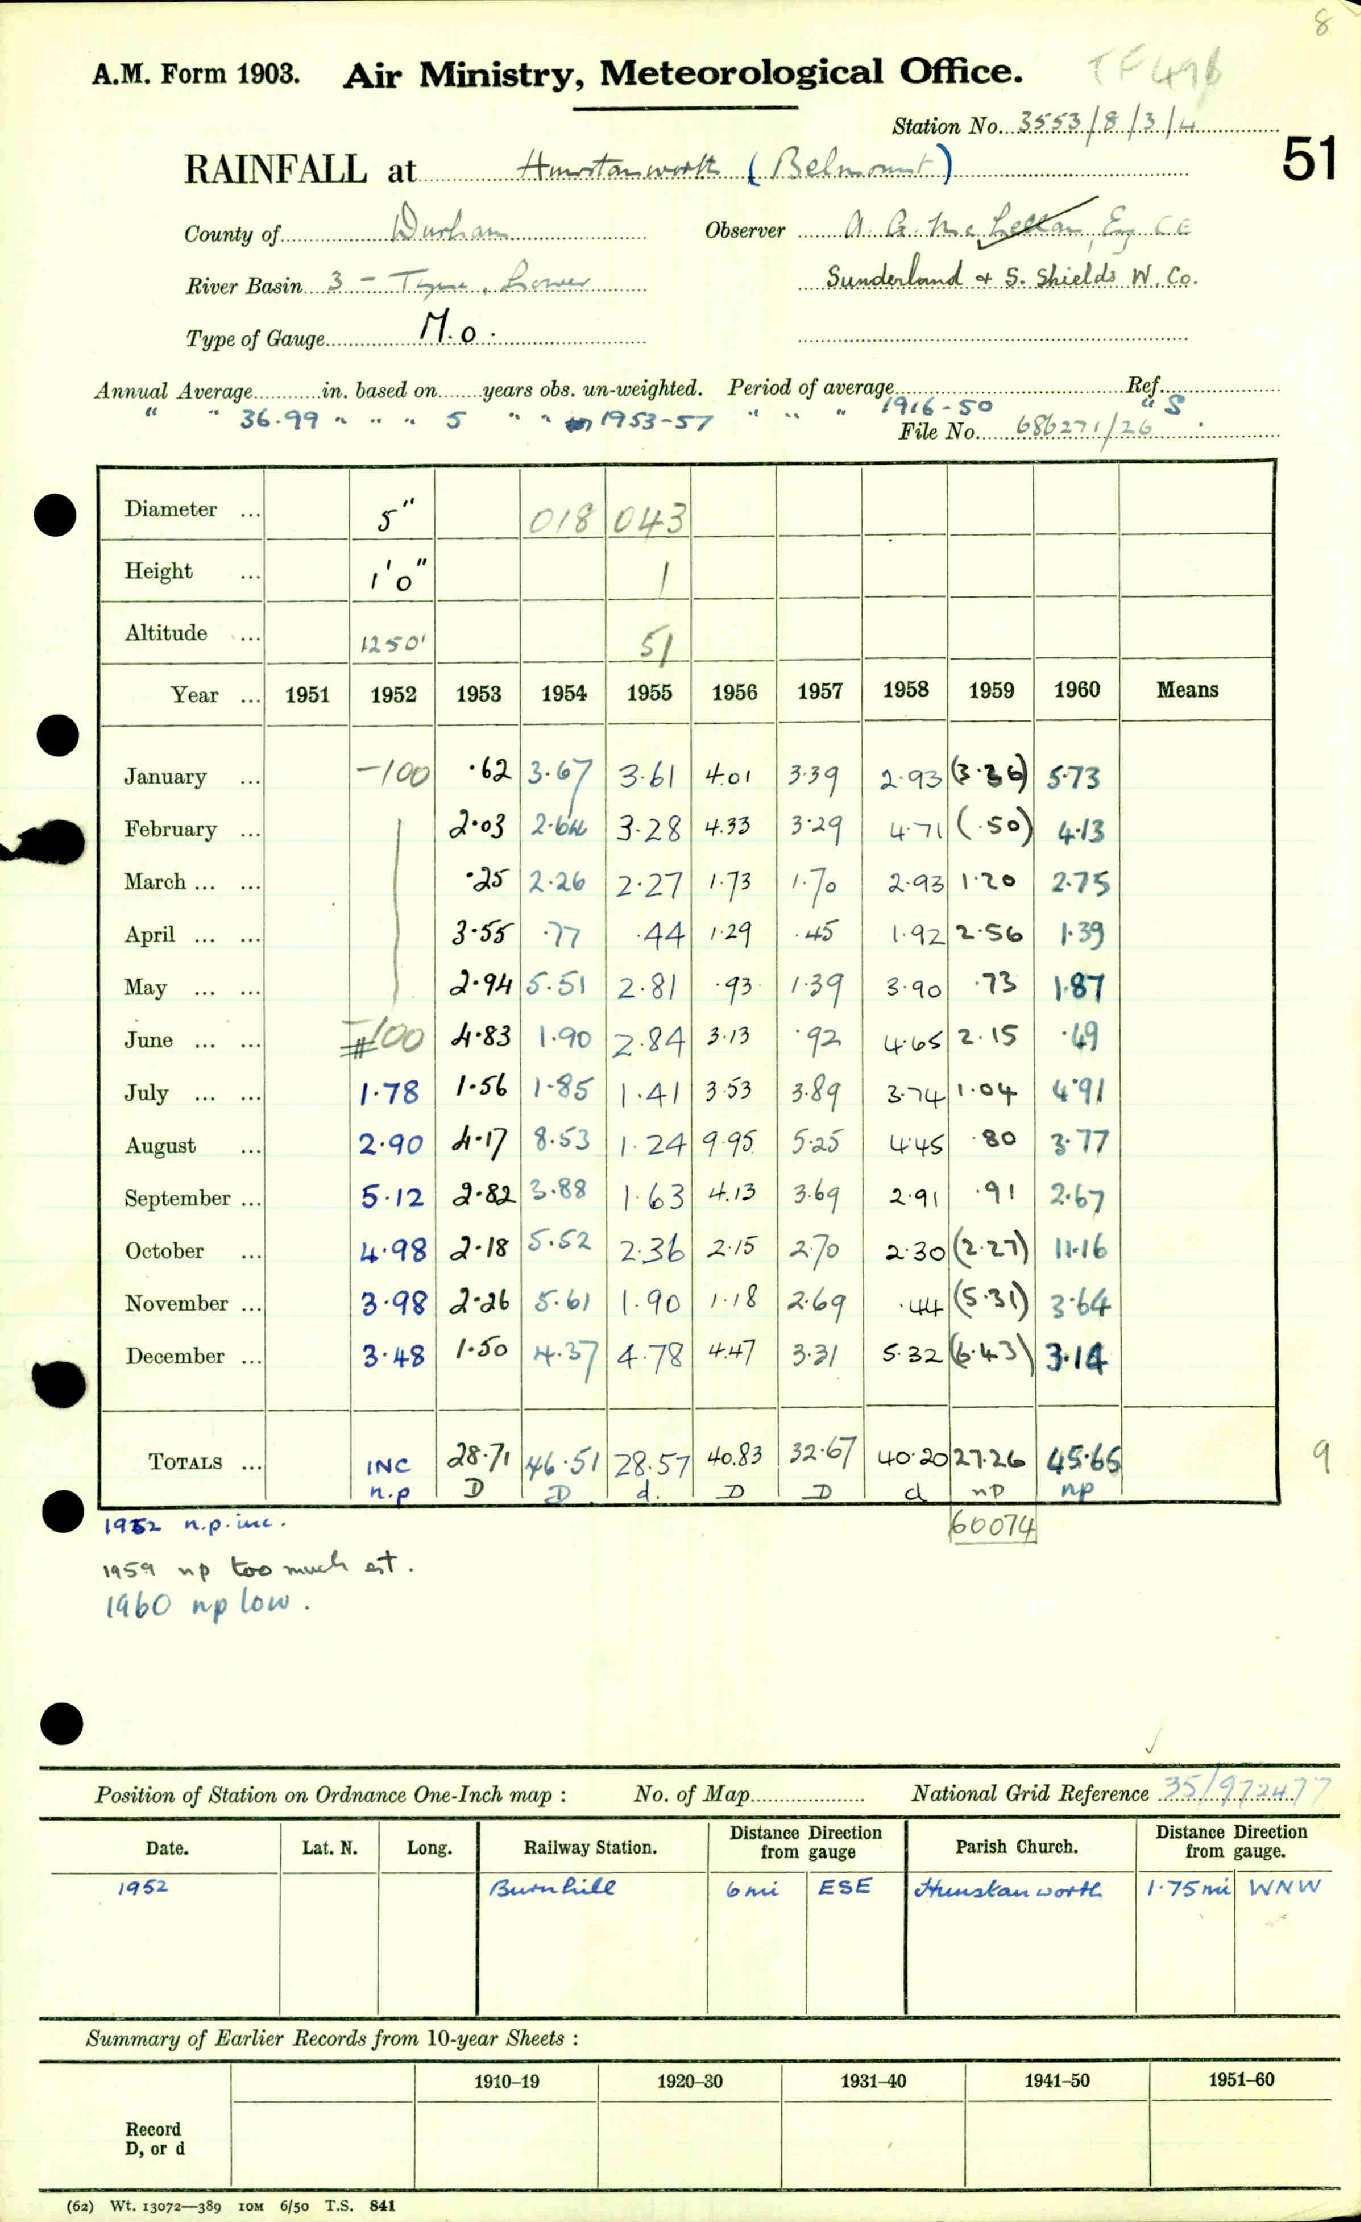 8
A.M. Form 1903. Air Ministry, Meteorological Office.
Station No. 3553/8/3/4
51
RAINFALL at Hunstanworth (Belmount)
County of Durham Observer A. G. McLellan, Esq CE
River Basin 3 - Tyne, Lower Sunderland & S. Shields W. Co.
Type of Gauge M.O.
Annual Average in. based on years obs. un-weighted. Period of average Ref.
" " 36.99 " " " 5 " " 1953-57 " " " 1916-50 " S
File No. 686271/26
Diameter ... 5" 018 043
Height ... 1'0" 1
Altitude ... 1250' 51
Year ... 1951 1952 1953 1954 1955 1956 1957 1958 1959 1960 Means
January ... -100 .62 3.67 3.61 4.01 3.39 2.93 (3.36) 5.73
February ... 2.03 2.64 3.28 4.33 3.29 4.71 (.50) 4.13
March ... ... .25 2.26 2.27 1.73 1.70 2.93 1.20 2.75
April ... ... 3.55 .77 .44 1.29 .45 1.92 2.56 1.39
May ... ... 2.94 5.51 2.81 .93 1.39 3.90 .73 1.87
June ... ... -100 4.83 1.90 2.84 3.13 .92 4.65 2.15 .49
July ... ... 1.78 1.56 1.85 1.41 3.53 3.89 3.74 1.04 4.91
August ... 2.90 4.17 8.53 1.24 9.95 5.25 4.45 .80 3.77
September ... 5.12 2.82 3.88 1.63 4.13 3.69 2.91 .91 2.67
October ... 4.98 2.18 5.52 2.36 2.15 2.70 2.30 (2.27) 11.16
November ... 3.98 2.26 5.61 1.90 1.18 2.69 .44 (5.31) 3.64
December ... 3.48 1.50 4.37 4.78 4.47 3.31 5.32 (6.43) 3.14
TOTALS ... INC 28.71 46.51 28.57 40.83 32.67 40.20 27.26 45.65
9
n.p D D d. D D d np np
1952 n.p. inc.
60074
1959 np too much est.
1960 np low.
Position of Station on Ordnance One-Inch map : No. of Map National Grid Reference 35/972477
Date. Lat. N. Long. Railway Station. Distance from Direction gauge Parish Church. Distance from Direction gauge.
1952 Burnhill 6 mi ESE Hunstanworth 1.75 mi WNW
Summary of Earlier Records from 10-year Sheets :
1910–19 1920–30 1931–40 1941–50 1951–60
Record
D, or d
(62) Wt. 13072—389 10M 6/50 T.S. 841